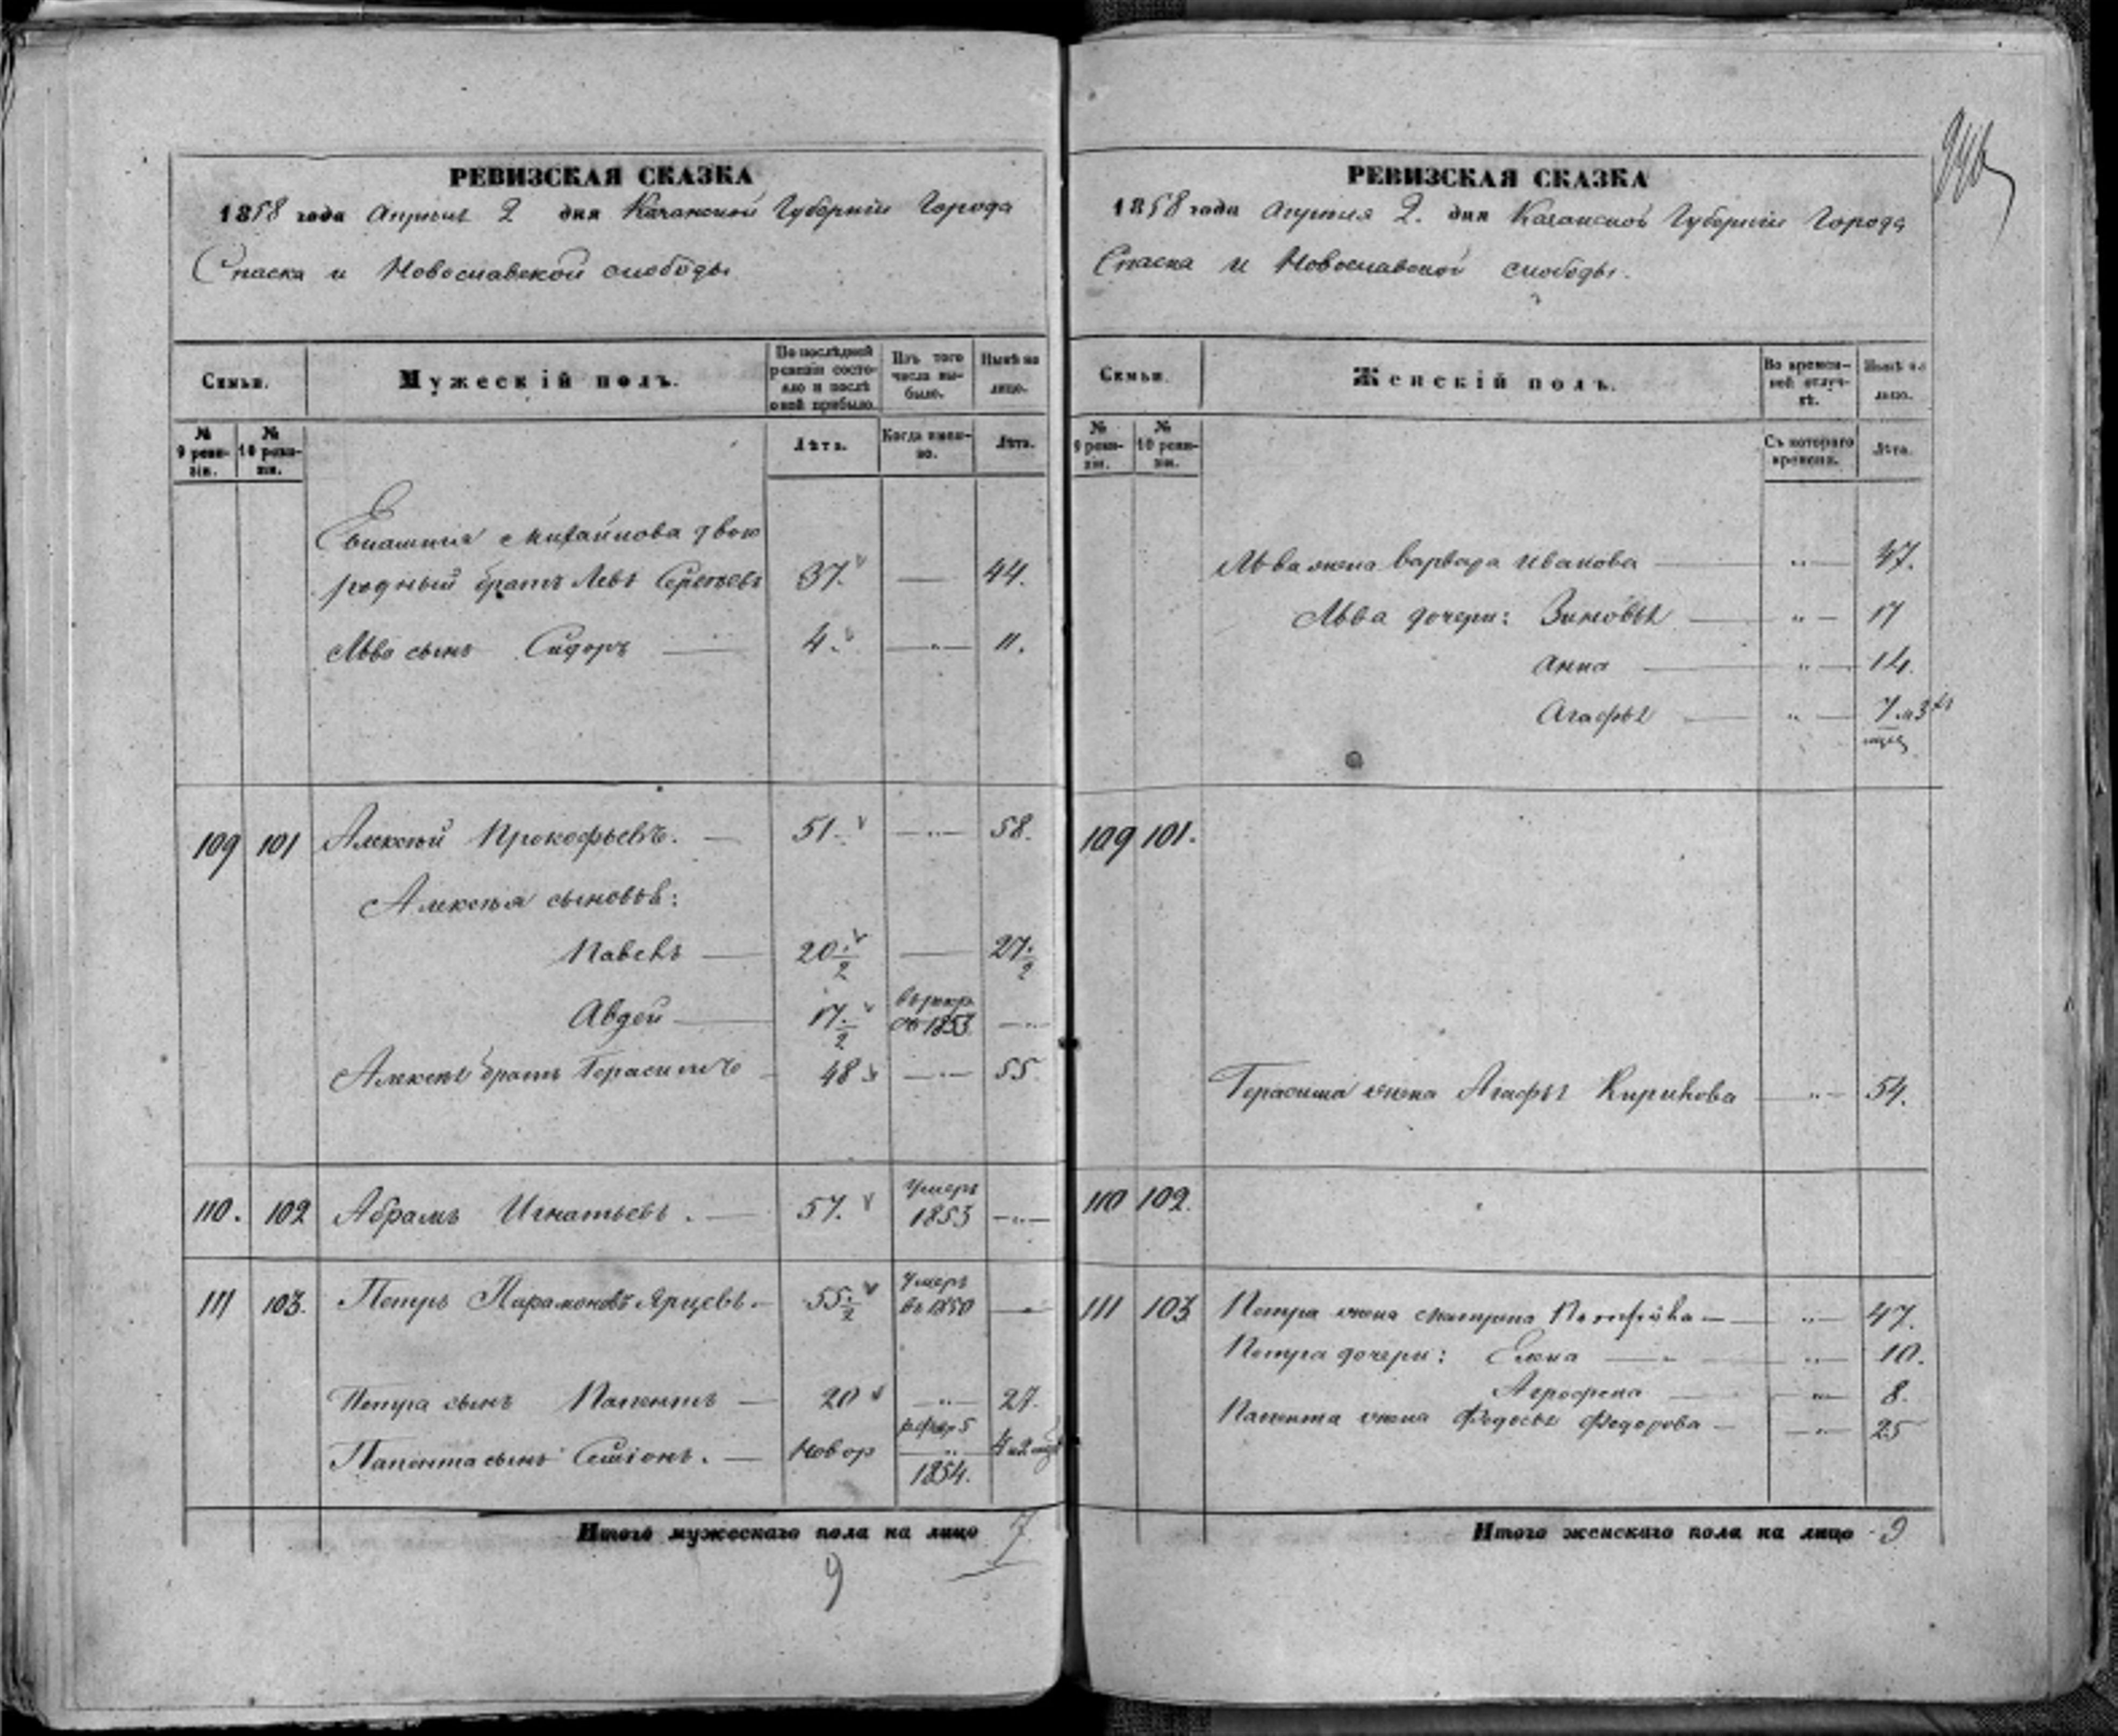 РЕВИЗСКАЯ СКАЗКА
1858 года Апрѣля 2 дня Казанской Губерніи Города
Спаска и Новоспавской слободы
Семьи.
Мужескій полъ.
По послѣдней ревизіи состояло и послѣ оной прибыло.
Изъ того числа выбыло.
Нынѣ на лицо.
№ 9 ревизіи.
№ 10 ревизіи.
Лѣта.
Когда именно.
Лѣта.
Михайлова двою
родный братъ Левъ Сергѣевъ 37. — 44.
Льва сынъ Сидоръ — 4. — " — 11.
109 101 Алексѣй Прокофьевъ. — 51. — " — 58.
Алексѣя сыновья:
Павелъ — 20 1/2 — 27 1/2
Авдей — 17 1/2 въ рекр. въ 1853 — " —
Алексѣя братъ Герасимъ — 48 — " — 55
110. 102 Абрамъ Игнатьевъ. — 57. Умеръ 1853 — " —
111 103. Петръ Парамоновъ Ярцевъ. — 55 1/2 Умеръ въ 1850 —
Петра сынъ — 20 — " — 27.
сынъ Семіонъ. — Новор 1854. 4 и 2
Итого мужескаго пола на лицо 7
9
946
РЕВИЗСКАЯ СКАЗКА
1858 года Апрѣля 2. дня Казанской Губерніи Города
Спаска и Новоспавской слободы.
Семьи.
Женскій полъ.
Во временной отлучкѣ.
Нынѣ на лицо.
№ 9 ревизіи.
№ 10 ревизіи.
Съ котораго времени.
Лѣта.
Льва жена Варвара Иванова — " — 47.
Льва дочери: Зиновья — " — 17
Анна — " — 14.
Агафья — " — 7 и 3
109 101.
Герасима жена Агафья Кирилова — " — 54.
110 102.
111 103 Петра жена Матрена — " — 47.
Петра дочери: Елена — " — 10.
Агрофена — " — 8.
жена Федосья Федорова — " — 25
Итого женскаго пола на лицо 9